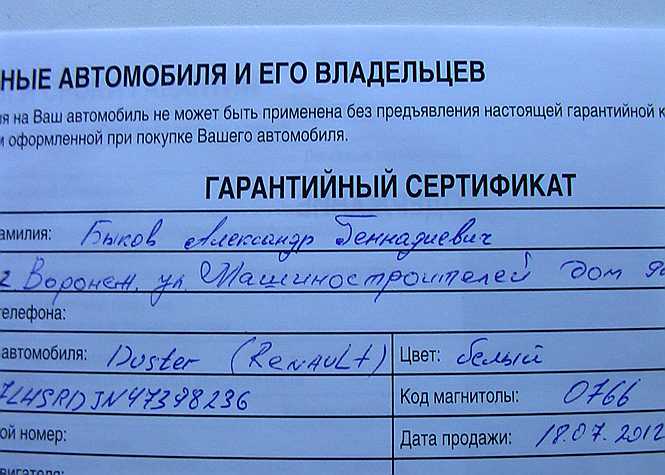 НЫЕ АВТОМОБИЛЯ И ЕГО ВЛАДЕЛЬЦЕВ
ия на Ваш автомобиль не может быть применена без предъявления настоящей гарантийной к
и оформленной при покупке Вашего автомобиля.
ГАРАНТИЙНЫЙ СЕРТИФИКАТ
амилия: Быков Александр Геннадиевич
г. Воронеж, ул. Машиностроителей дом
телефона:
автомобиля: Duster (RENAULt) Цвет: белый
7LHSRDJN47398236 Код магнитолы: 0766
ой номер: Дата продажи: 18.07.2012
вигателя: